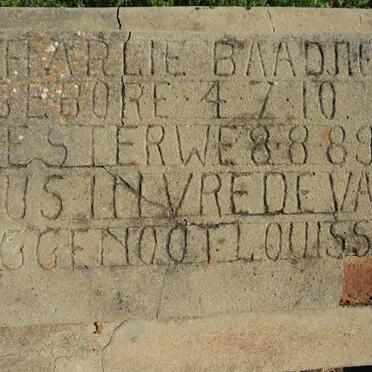 HARLIE BAADJI
EBORE 4.7.10.
ESTERWE 8.8.89
US IN VREDE VA
GGENOOT LOUISS